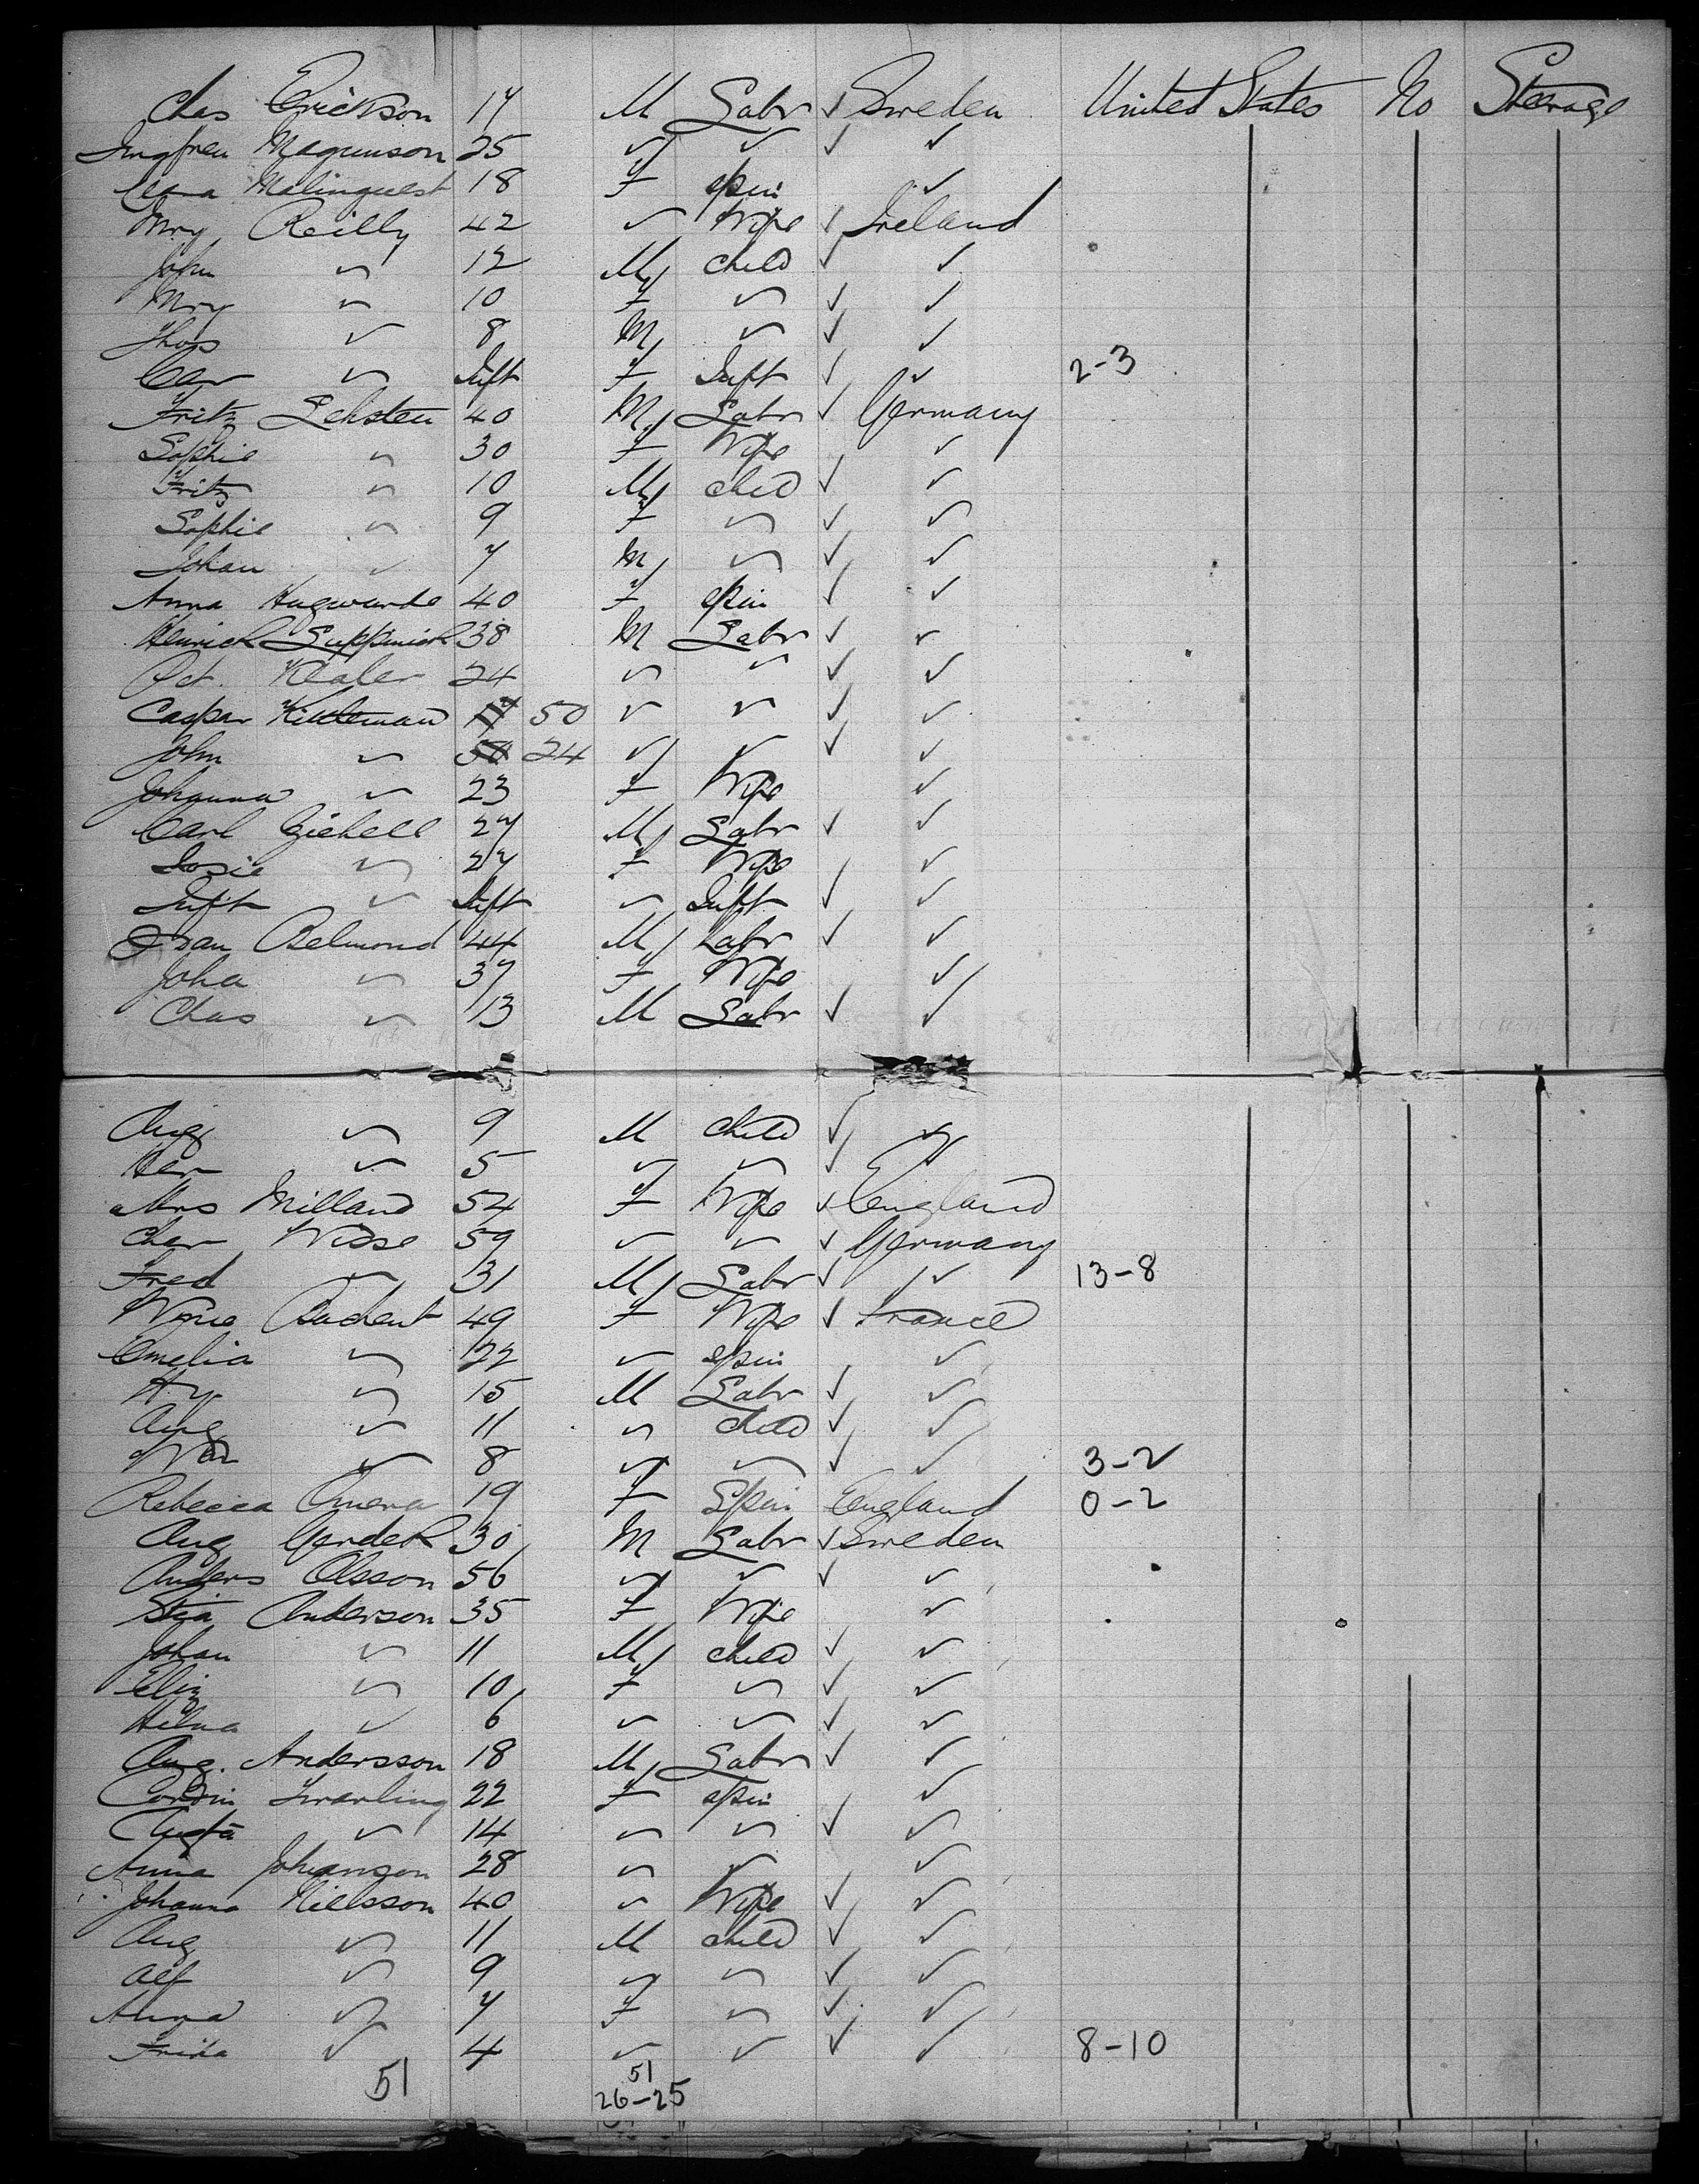 Chas Erickson 17 M Labr ✓ Sweden United States No Steerage
Magnuson 25 ✓ ✓ ✓ ✓
Malinquest 18 F spin ✓
Mry Reilly 42 ✓ Wife ✓ Ireland
John ✓ 12 M child ✓ ✓
Mry ✓ 10 F ✓ ✓ ✓
Thos ✓ 8 M ✓ ✓ ✓
✓ Inft F Inft ✓ ✓ 2-3
Fritz Lehsten 40 M Labr ✓ Germany
Sophie ✓ 30 F Wife ✓
Fritz ✓ 10 M child ✓ ✓
Sophie ✓ 9 F ✓ ✓ ✓
Johan ✓ 7 M ✓ ✓ ✓
Anna 40 F spin ✓ ✓
Heinrich 38 M Labr ✓ ✓
24 ✓ ✓ ✓ ✓
Caspar Kittleman 50 ✓ ✓ ✓ ✓
John ✓ 50 24 ✓ ✓ ✓ ✓
Johanna ✓ 23 F Wife ✓
Carl 27 M Labr ✓ ✓
✓ 27 F Wife ✓
Inft ✓ Inft ✓ Inft ✓ ✓
Belmond 44 M Labr ✓ ✓
Joha ✓ 37 F Wife ✓
Chas ✓ 13 M Labr ✓ ✓
Aug ✓ 9 M child ✓ ✓
Her ✓ 5 ✓ ✓ ✓ ✓
Mrs Milland 54 F Wife ✓ England
Char Wisse 59 ✓ ✓ ✓ Germany
Fred ✓ 31 M Labr ✓ ✓ 13-8
Bachent 49 F Wife ✓ France
Emelia ✓ 22 ✓ spin ✓
Hy ✓ 15 M Labr ✓ ✓
Aug ✓ 11 ✓ child ✓ ✓
✓ 8 ✓ ✓ ✓ ✓ 3-2
Rebecca Omera 19 F Spin England 0-2
Aug 30 M Labr ✓ Sweden
Anders Olsson 56 ✓ ✓ ✓ ✓
Stia Anderson 35 F Wife ✓
Johan ✓ 11 M child ✓ ✓
Eliz ✓ 10 F ✓ ✓ ✓
Hilma ✓ 6 ✓ ✓ ✓ ✓
Aug. Andersson 18 M Labr ✓ ✓
Swarling 22 F spin ✓
Augta ✓ 14 ✓ ✓ ✓ ✓
Anna Johanson 28 ✓ ✓ ✓
Johanna Nielsson 40 ✓ Wife ✓ ✓
Aug ✓ 11 M child ✓ ✓
Alf ✓ 9 ✓ ✓ ✓ ✓
Anna ✓ 7 F ✓ ✓ ✓
Frida ✓ 4 ✓ ✓ ✓ ✓ 8-10
51 51
26-25